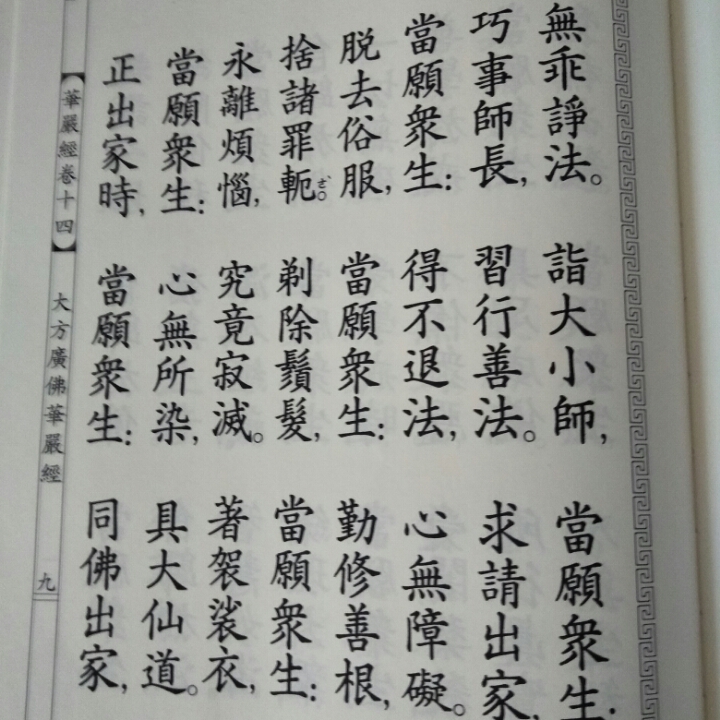 無乖諍法。 詣大小師, 當願衆生:
巧事師長, 習行善法。 求請出家,
當願衆生: 得不退法, 心無障礙。
脱去俗服, 當願衆生: 勤修善根,
捨諸罪軛。 剃除鬚髮, 當願衆生:
永離煩惱, 究竟寂滅。 著袈裟衣,
當願衆生: 心無所染, 具大仙道。
正出家時, 當願衆生: 同佛出家,
【華嚴經卷十四】 大方廣佛華嚴經 九